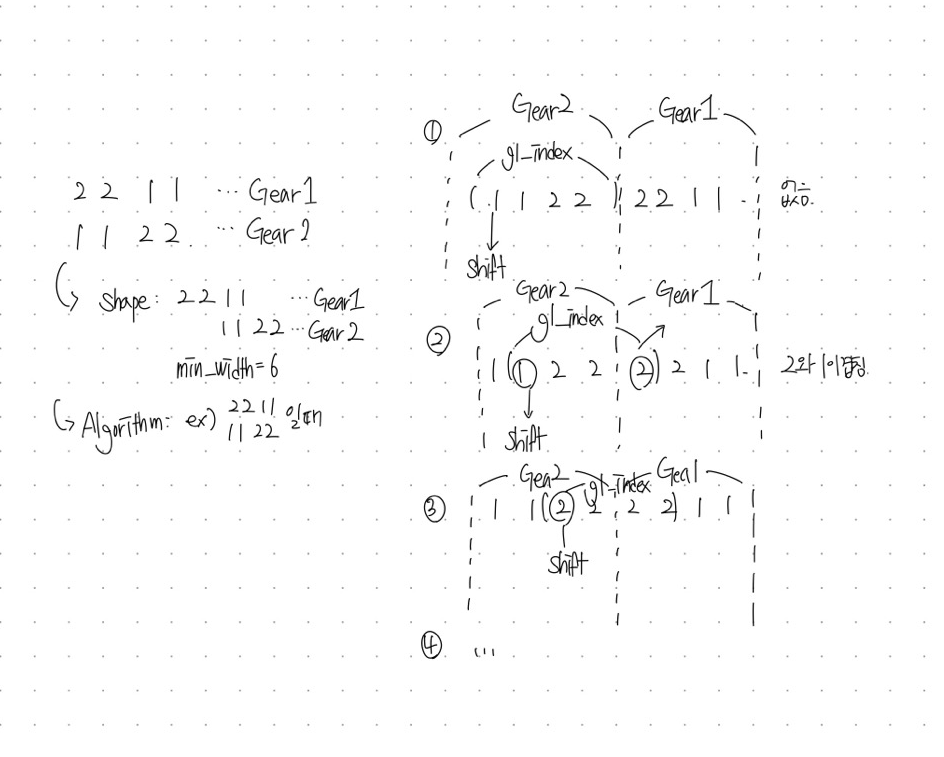 2 2 1 1 … Gear1
1 1 2 2. … Gear2
Shape: 2 2 1 1 … Gear1
1 1 2 2 … Gear2
min_width=6
Algorithm: ex) 2 2 1 1
1 1 2 2 일때
① Gear2 Gear1
gl_index
( 1 1 2 2 ) 2 2 1 1 . 없음.
shift
Gear2 Gear1
② gl_index
1 ( 1 2 2 2 ) 2 1 1 . 2와 1이
shift
Gea2 gl_index Gea1
③ 1 1 ( 2 2 2 2 ) 1 1
shift
④ ...